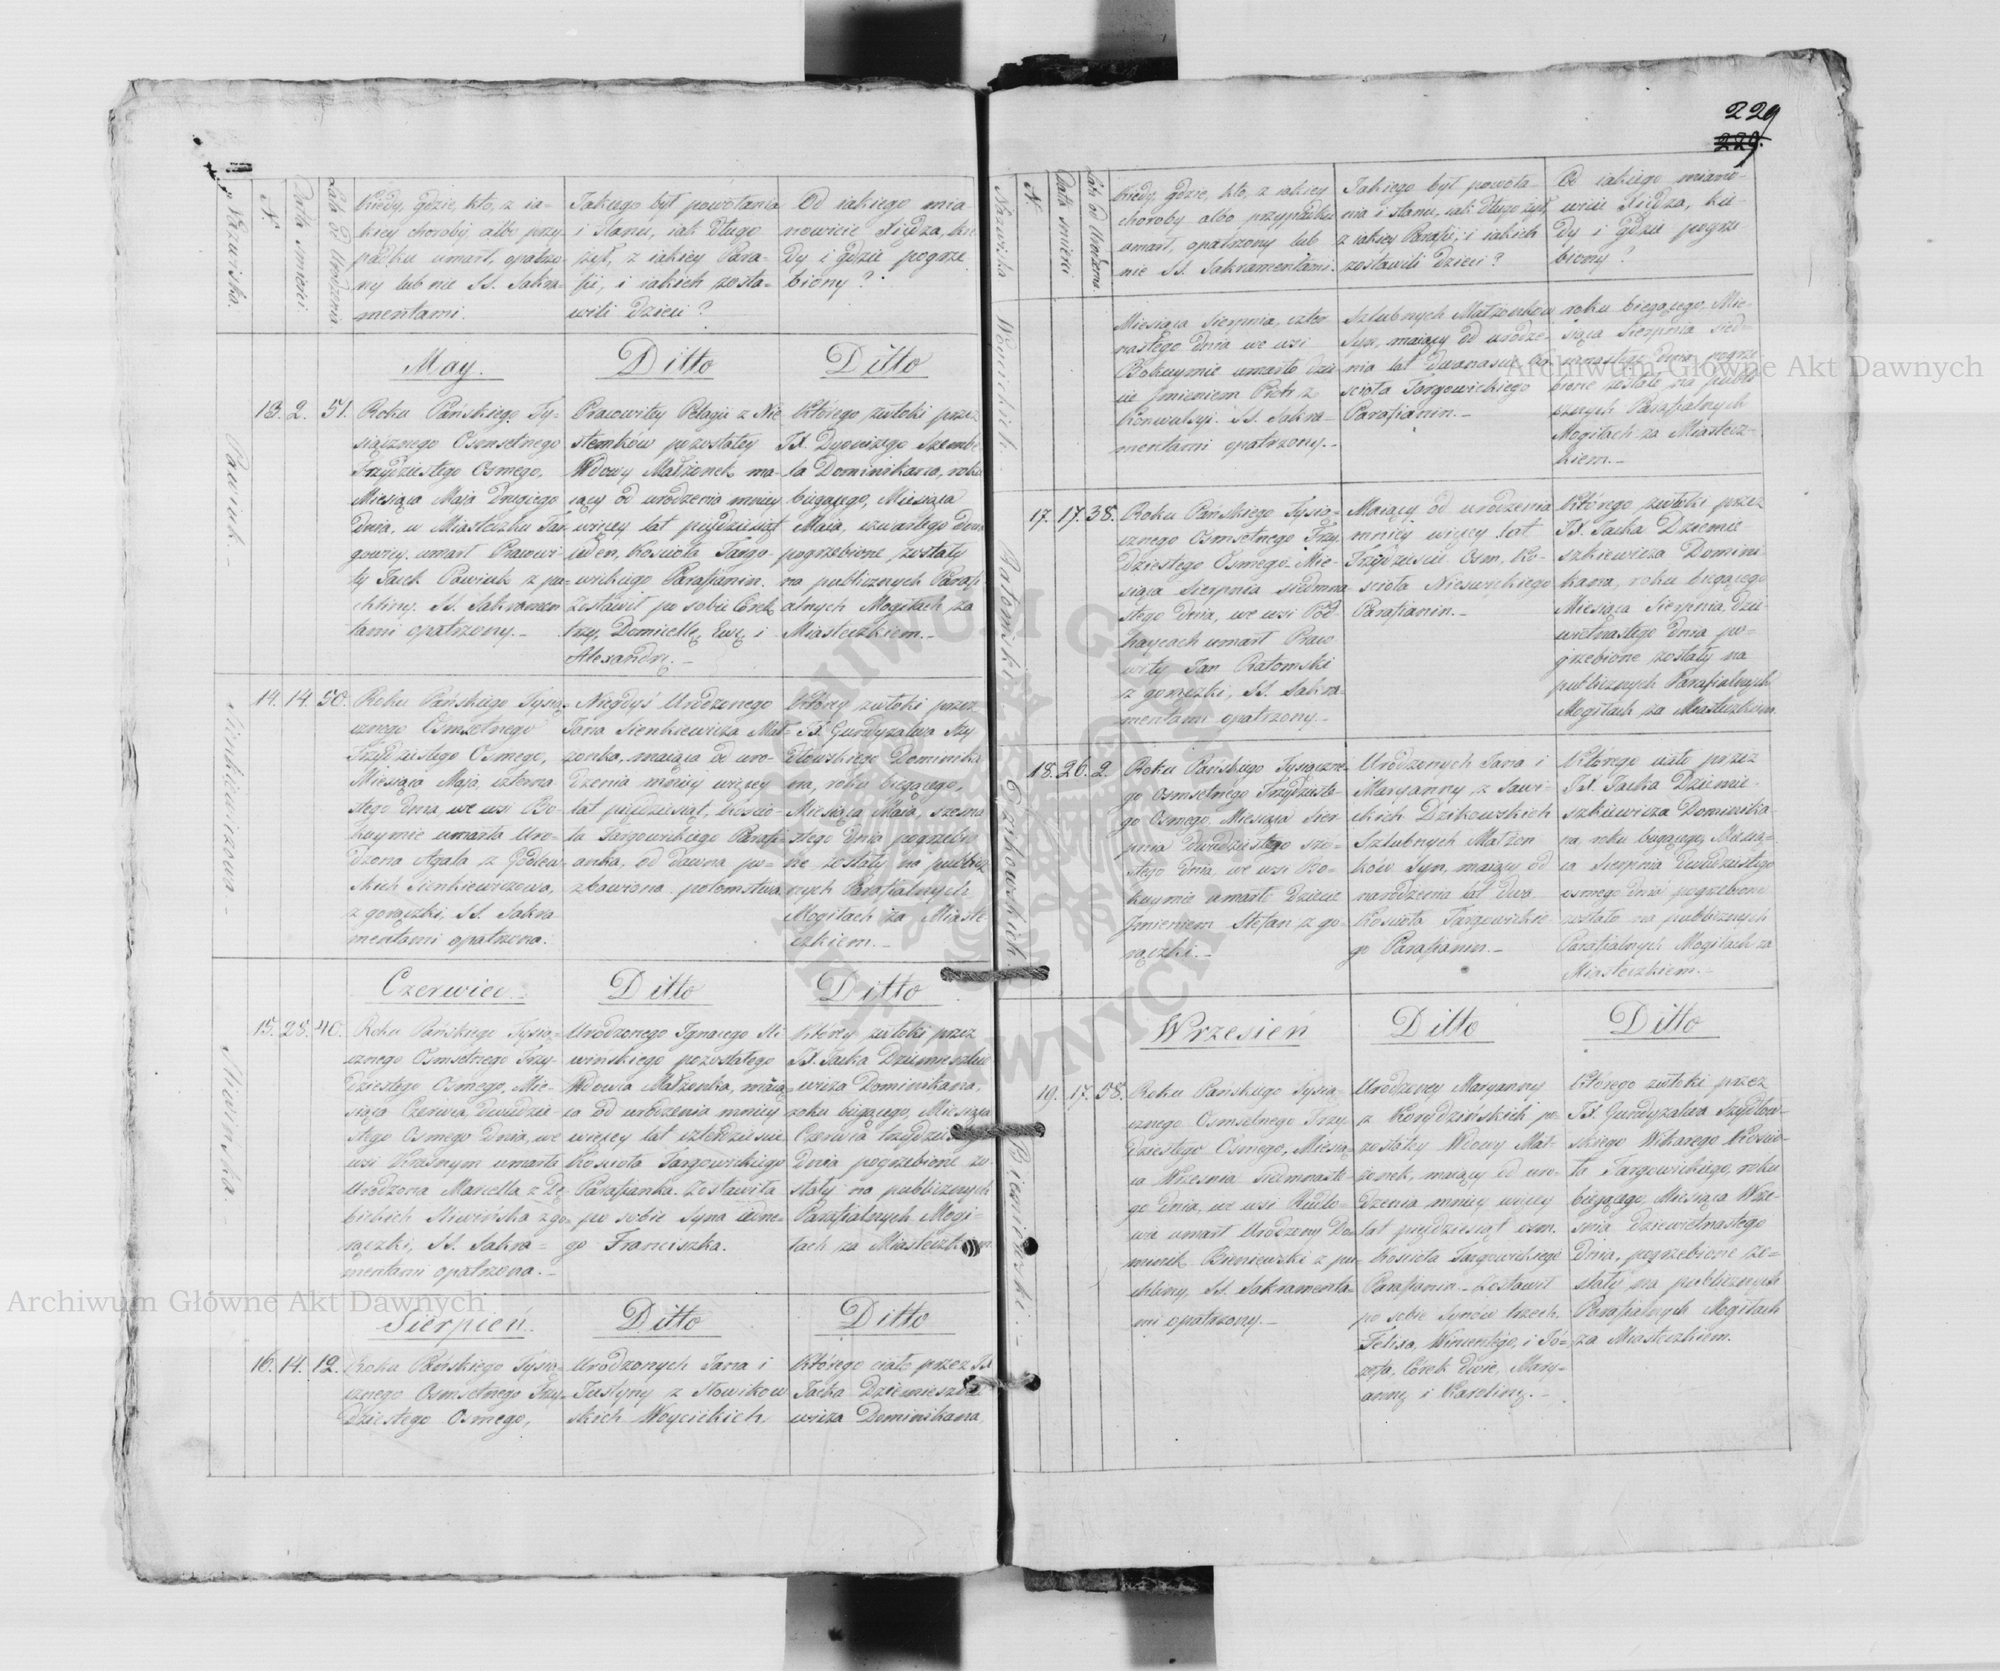 229
229.
Nazwiska.
N.
Data śmierci
Lata od Urodzenia
Kiedy, gdzie, kto, z ia-
kiey choroby albo przy-
padku umarł, opatrzo-
ny lub nie SS. Sakra-
mentami.
Jakiego był powołania
i stanu, iak długo
żył, z iakiey Para-
fii, i iakich zosta-
wili dzieci?
Od iakiego mia-
nowicie Xiędza, kie
dy i gdzie pogrze
biony?
May.
Ditto
Ditto
Pawiuk.-
13. 2. 51.
Roku Pańskiego Ty-
siącznego Osmsetnego
Trzydziestego Osmego,
Miesiąca Maja Drugiego
dnia, w Miasteczku Tar
gowicy umarł Pracowi-
ty Jacek Pawiuk z pu-
chliny. SS. Sakramen
tami opatrzony.-
Pracowitey Pelagii z Nie
stemków pozostałey
Wdowy Małżonek ma-
iący od urodzenia mniey
więcey lat pięćdziesiąt
ieden, Kościoła Targo-
wickiego Parafianin.
Zostawił po sobie Córek
trzy, Domicellę, Ewę i
Alexandrę.-
Którego zwłoki przez
JX. Dyonizego Szembe
la Dominikana, roku
bieżącego, Miesiąca
Maia, czwartego dnia
pogrzebione zostały
na publicznych Parafi
alnych Mogiłach za
Miasteczkiem.-
Sienkiewiczowa.-
14. 14. 50.
Roku Pańskiego Tysią-
cznego Osmsetnego
Trzydziestego Osmego,
Miesiąca Maja, czterna-
stego dnia, we wsi Bo-
kuymie umarła Uro-
dzona Agata z Godlew
skich Sienkiewiczowa,
z gorączki, SS. Sakra-
mentami opatrzona.
Niegdyś Urodzonego
Jana Sienkiewicza Mał-
żonka, maiąca od uro-
dzenia mniey więcey
lat pięćdziesiąt, kościo-
ła Targowickiego Parafi-
anka. od dawna po-
zbawiona potomstwa
Którey zwłoki przez
JX. Gundyzalwa Szy
dłowskiego Dominika
na, roku bieżącego,
Miesiąca Maia, szesna
stego dnia pogrzebio
ne zostały na publicz
nych Parafialnych
Mogiłach za Miaste
czkiem.-
Czerwiec.
Ditto
Ditto
Śliwińska.-
15. 28. 40.
Roku Pańskiego Tysią-
cznego Osmsetnego Trzy-
dziestego Osmego, Mie-
siąca Czerwca, dwudzie-
stego Osmego dnia, we
wsi Krasnym umarła
Urodzona Marcella z Dę-
bickich Śliwińska z go-
rączki, SS. Sakra-
mentami opatrzona.-
Urodzonego Ignacego Śli
wińskiego pozostałego
Wdowca Małżonka, maią
ca od urodzenia mniey
więcey lat czterdzieści
Kościoła Targowickiego
Parafianka. Zostawiła
po sobie Syna iedne-
go Franciszka.
Którey zwłoki przez
JX. Jacka Dziemieszkie
wicza Dominikana,
roku bieżącego, Miesiąca
Czerwca trzydzies
dnia pogrzebione zo-
stały na publicznych
Parafialnych Mogi-
łach za Miasteczkiem
Sierpień.
Ditto
Ditto
16. 14. 12.
Roku Pańskiego Tysią-
cznego Osmsetnego Trzy-
dziestego Osmego,
Urodzonych Jana i
Justyny z Słowikow
skich Woycickich
Którego ciało przez JX
Jacka Dziemieszkie
wicza Dominikana
Nazwiska
N.
Data śmierci
Lata od Urodzenia.
Kiedy, gdzie, kto, z iakiey
choroby albo przypadku
umarł, opatrzony lub
nie SS. Sakramentami.
Jakiego był powoła-
nia i stanu, iak długo żył,
z iakiey Parafii, i iakich
zostawili dzieci?
Od iakiego miano-
wicie Xiędza, kie-
dy i gdzie pogrze
biony?
Woycickich.
Miesiąca Sierpnia, czter
nastego dnia we wsi
Bokuymie umarło dzie
cie Imieniem Piotr z
Konwulsyi. SS. Sakra-
mentami opatrzony.-
Szlubnych Małżonków
Syn, maiący od urodze-
nia lat dwanaście, Ko
ścioła Targowickiego
Parafianin.-
roku bieżącego, Mie-
siąca Sierpnia sied-
mnastego dnia, pogrze
bione zostało na publi
cznych Parafialnych
Mogiłach za Miastecz-
kiem.-
Ratomski.
17. 17. 38.
Roku Pańskiego Tysią-
cznego Osmsetnego Trzy-
dziestego Osmego Mie-
siąca Sierpnia siedmna
stego dnia, we wsi Pod-
haycach umarł Praco
wity Jan Ratomski
z gorączki, SS. Sakra-
mentami opatrzony.-
Maiący od urodzenia
mniey więcey lat
Trzydzieści Osm, Ko-
ścioła Nieswickiego
Parafianin.-
Którego zwłoki przez
JX. Jacka Dziemie
szkiewicza Domini-
kana, roku bieżącego
Miesiąca Sierpnia, dzie
wietnastego dnia po-
grzebione zostały na
publicznych Parafialnych
Mogiłach za Miasteczkiem.
Dzikowskich.
18. 26. 2.
Roku Pańskiego Tysiączne-
go Osmsetnego Trzydzieste-
go Osmego, Miesiąca Sier-
pnia dwudziestego szó-
stego dnia, we wsi Bo-
kuymie umarło Dziecie
Imieniem Stefan z go-
rączki.-
Urodzonych Jana i
Maryanny z Sawi-
ckich Dzikowskich
Szlubnych Małżon
ków Syn, maiący od
narodzenia lat dwa
Kościoła Targowickie
go Parafianin.-
Którego ciało przez
JX. Jacka Dziemie-
szkiewicza Dominika-
na, roku bieżącego, Miesią-
ca Sierpnia dwudziestego
osmego dnia pogrzebione
zostało na publicznych
Parafialnych Mogiłach za
Miasteczkiem.-
Wrzesień
Ditto
Ditto
Bieniewski.-
19. 17. 58.
Roku Pańskiego Tysią-
cznego Osmsetnego Trzy-
dziestego Osmego, Miesią-
ca Września Siedmnaste-
go dnia, we wsi Rudlo-
wie umarł Urodzony Do-
minik Bieniewski z pu-
chliny, SS. Sakramenta-
mi opatrzony.-
Urodzoney Maryanny
z Korydzińskich po-
zostałey Wdowy Mał-
żonek, maiący od uro-
dzenia mniey więcey
lat pięćdziesiąt osm.
Kościoła Targowickiego
Parafianin. Zostawił
po sobie Synów trzech,
Felixa, Wincentego, i Jó-
zefa, Córek dwie, Mary-
annę i Karolinę.-
Którego zwłoki przez
JX. Gundyzalwa Szydłow-
skiego Wikarego Kościo-
ła Targowickiego, roku
bieżącego Miesiąca Wrze-
śnia, dziewietnastego
dnia, pogrzebione zo-
stały na publicznych
Parafialnych Mogiłach
za Miasteczkiem.
Archiwum Główne Akt Dawnych
Archiwum Główne Akt Dawnych